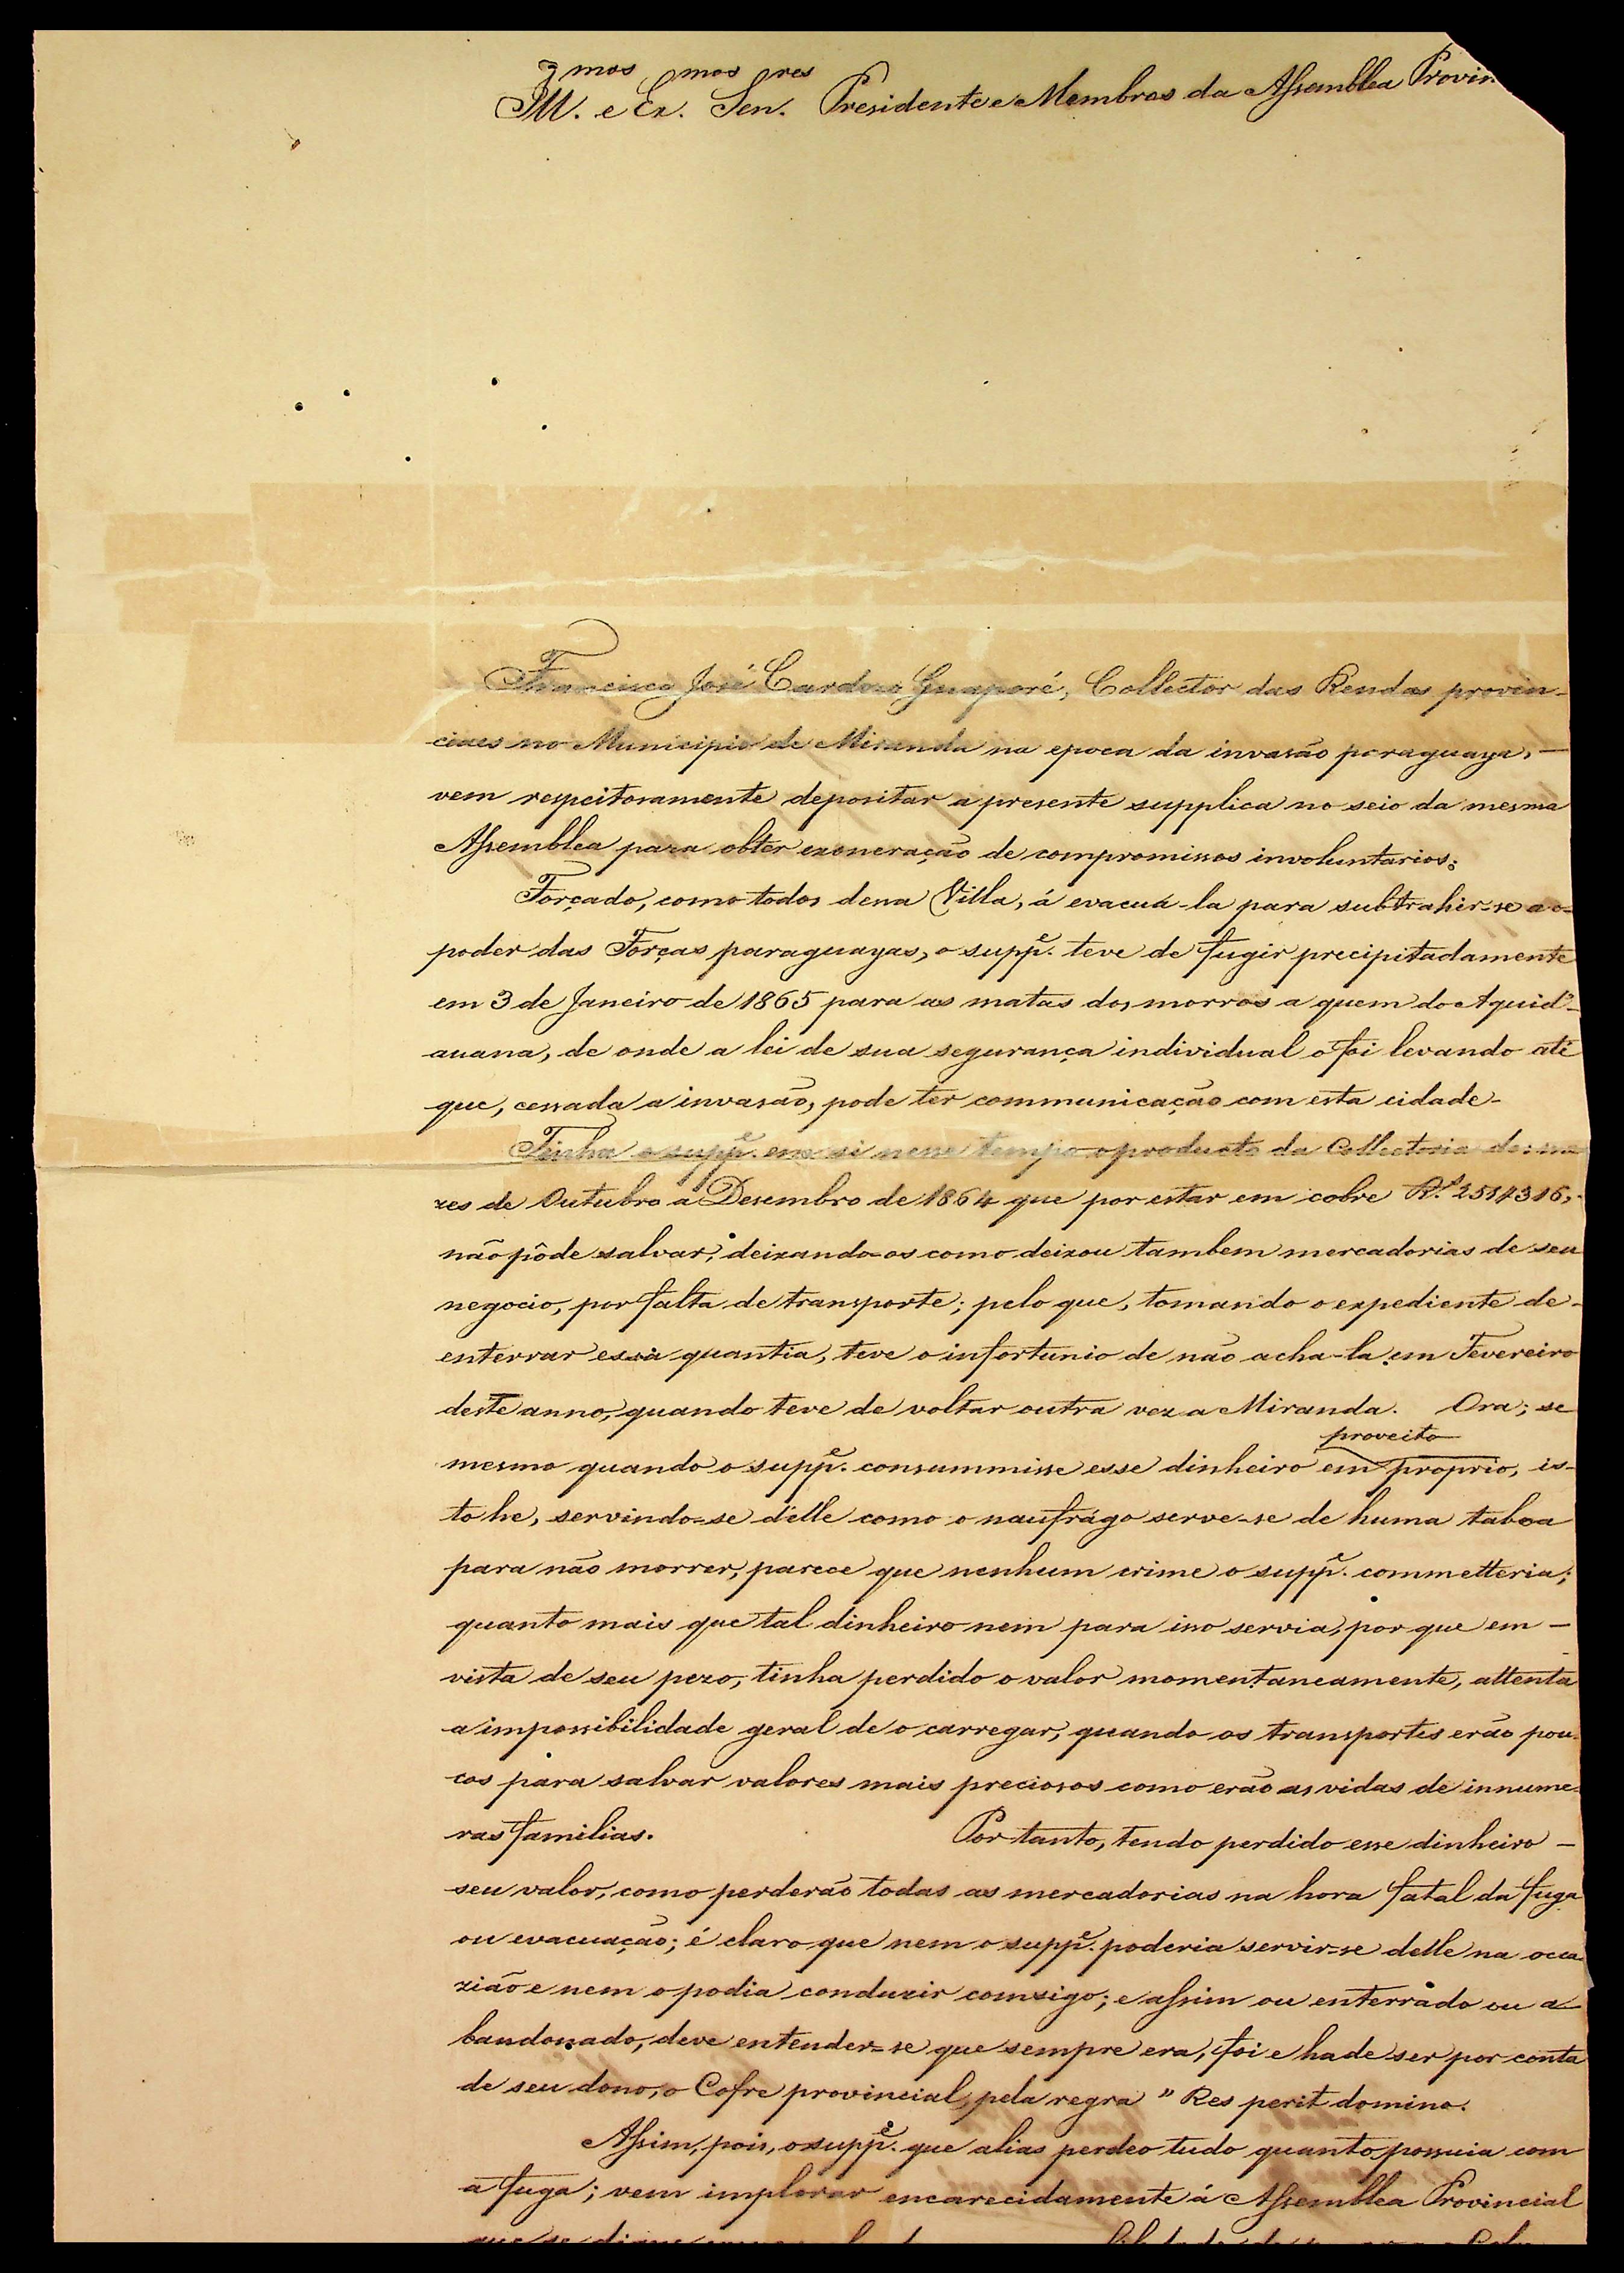 Ill.mos e Ex.mos Sen.res Presidente e Membros da Assemblea Provin
Francisco José Cardozo Guaporé, Collector das Rendas provin-
ciaes no Municipio de Miranda na epoca da invasão paraguaya, -
vem respeitosamente depositar a presente supplica no seio da mesma
Assemblea para obter exoneração de compromissos involuntarios:
Forçado, como todos dessa Villa, á evacuá-la para subtrahir-se ao-
poder das Forças paraguayas, o supp.e teve de fugir precipitadamente
em 3 de Janeiro de 1865 para as matas dos morros a quem do Aquid-
auana, de onde a lei de sua segurança individual o foi levando até
que, cessada a invasão, pode ter communicação com esta cidade-
Tinha o supp.e em si nesse tempo o producto da Collectoria dos me
zes de Outubro a Desembro de 1864 que por estar em cobre R.s
não pôde salvar, deixando-os como deixou tambem mercadorias de seu
negocio, por falta de transporte; pelo que, tomando o expediente de-
enterrar essa quantia, teve o infortunio de não acha-la em Fevereiro
deste anno, quando teve de voltar outra vez a Miranda. Ora; se
proveito
mesmo quando o supp.e consummisse esse dinheiro em proprio, is-
to he, servindo-se d'elle como o naufrágo serve-se de huma taboa
para não morrer, parece que nenhum crime o supp.e commetteria;
quanto mais que tal dinheiro nem para isso servia, por que em -
vista de seu pezo, tinha perdido o valor momentaneamente, attenta
a impossibilidade geral de o carregar, quando os transportes erão pou-
cos para salvar valores mais preciosos como erão as vidas de innume-
ras familias. Por tanto, tendo perdido esse dinheiro -
seu valor, como perderão todas as mercadorias na hora fatal da fuga
ou evacuação; é claro que nem o supp.e poderia servir-se delle na occa-
zião e nem o podia conduzir comsigo; e assim ou enterrado ou a-
bandonado, deve entender-se que sempre era, foi e hade ser por conta
de seu dono, o Cofre provincial, pela regra " Res perit domino.
Assim, pois, o supp.e que alias perdeo tudo quanto possuia com
a fuga; vem implorar encarecidamente á Assemblea Provincial